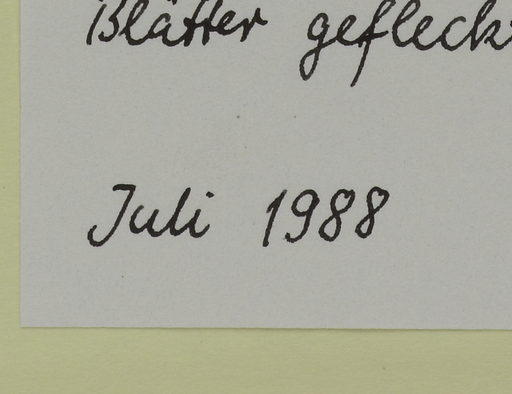 Blätter gefleckt
Juli 1988